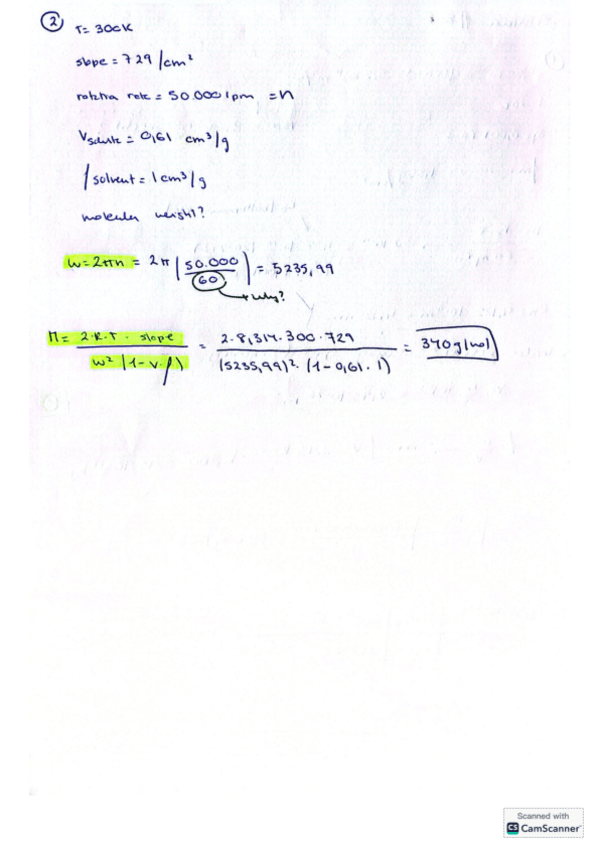 2
T= 300K
slope = 729 /cm²
rotation rate = 50.000 rpm = n
Vsolute = 0,61 cm³/g
ρ solvent = 1 cm³/g
molecular weight?
w=2πn = 2π (50.000/60) = 5235,99
why?
M= 2.R.T. slope / w² (1-v.ρ) = 2.8,314.300.729 / (5235,99)². (1-0,61.1) = 340 g/mol
Scanned with
CS CamScanner